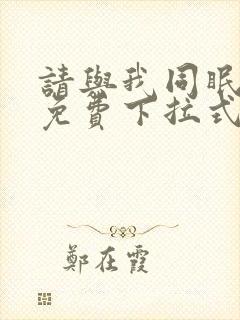 請與我同眠
免費下拉式
鄭在霞